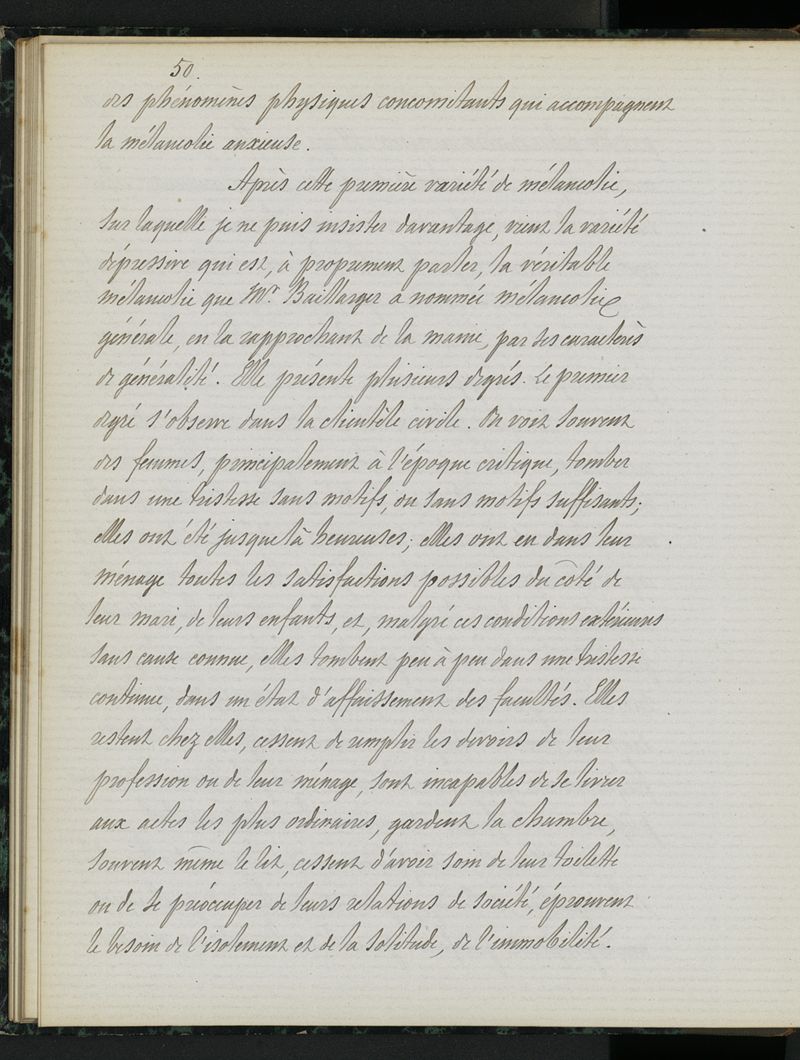 50.
des phénomènes physiques concomitants qui accompagnent
la mélancolie anxieuse.
Après cette première variété de mélancolie,
sur laquelle je ne puis insister davantage, vient la variété
dépressive qui est, à proprement parler, la véritable
mélancolie que Mr. Baillarger a nommée mélancolie
générale, en la rapprochant de la manie, par ses caractères
de généralité. Elle présente plusieurs degrés. Le premier
degré s'observe dans la clientèle civile. On voit souvent
des femmes, principalement à l'époque critique, tomber
dans une tristesse sans motifs, ou sans motifs suffisants;
elles ont été jusque là heureuses; elles ont eu dans leur
ménage toutes les satisfactions possibles du côté de
leur mari, de leurs enfants, et, malgré ces conditions extérieures
sans cause connue, elles tombent peu à peu dans une tristesse
continue, dans un état d'affaissement des facultés. Elles
restent chez elles, cessent de remplir les devoirs de leur
profession ou de leur ménage, sont incapables de se livrer
aux actes les plus ordinaires, gardent la chambre,
souvent même le lit, cessent d'avoir soin de leur toilette
ou de se préoccuper de leurs relations de société, éprouvent
le besoin de l'isolement et de la solitude, de l'immobilité.